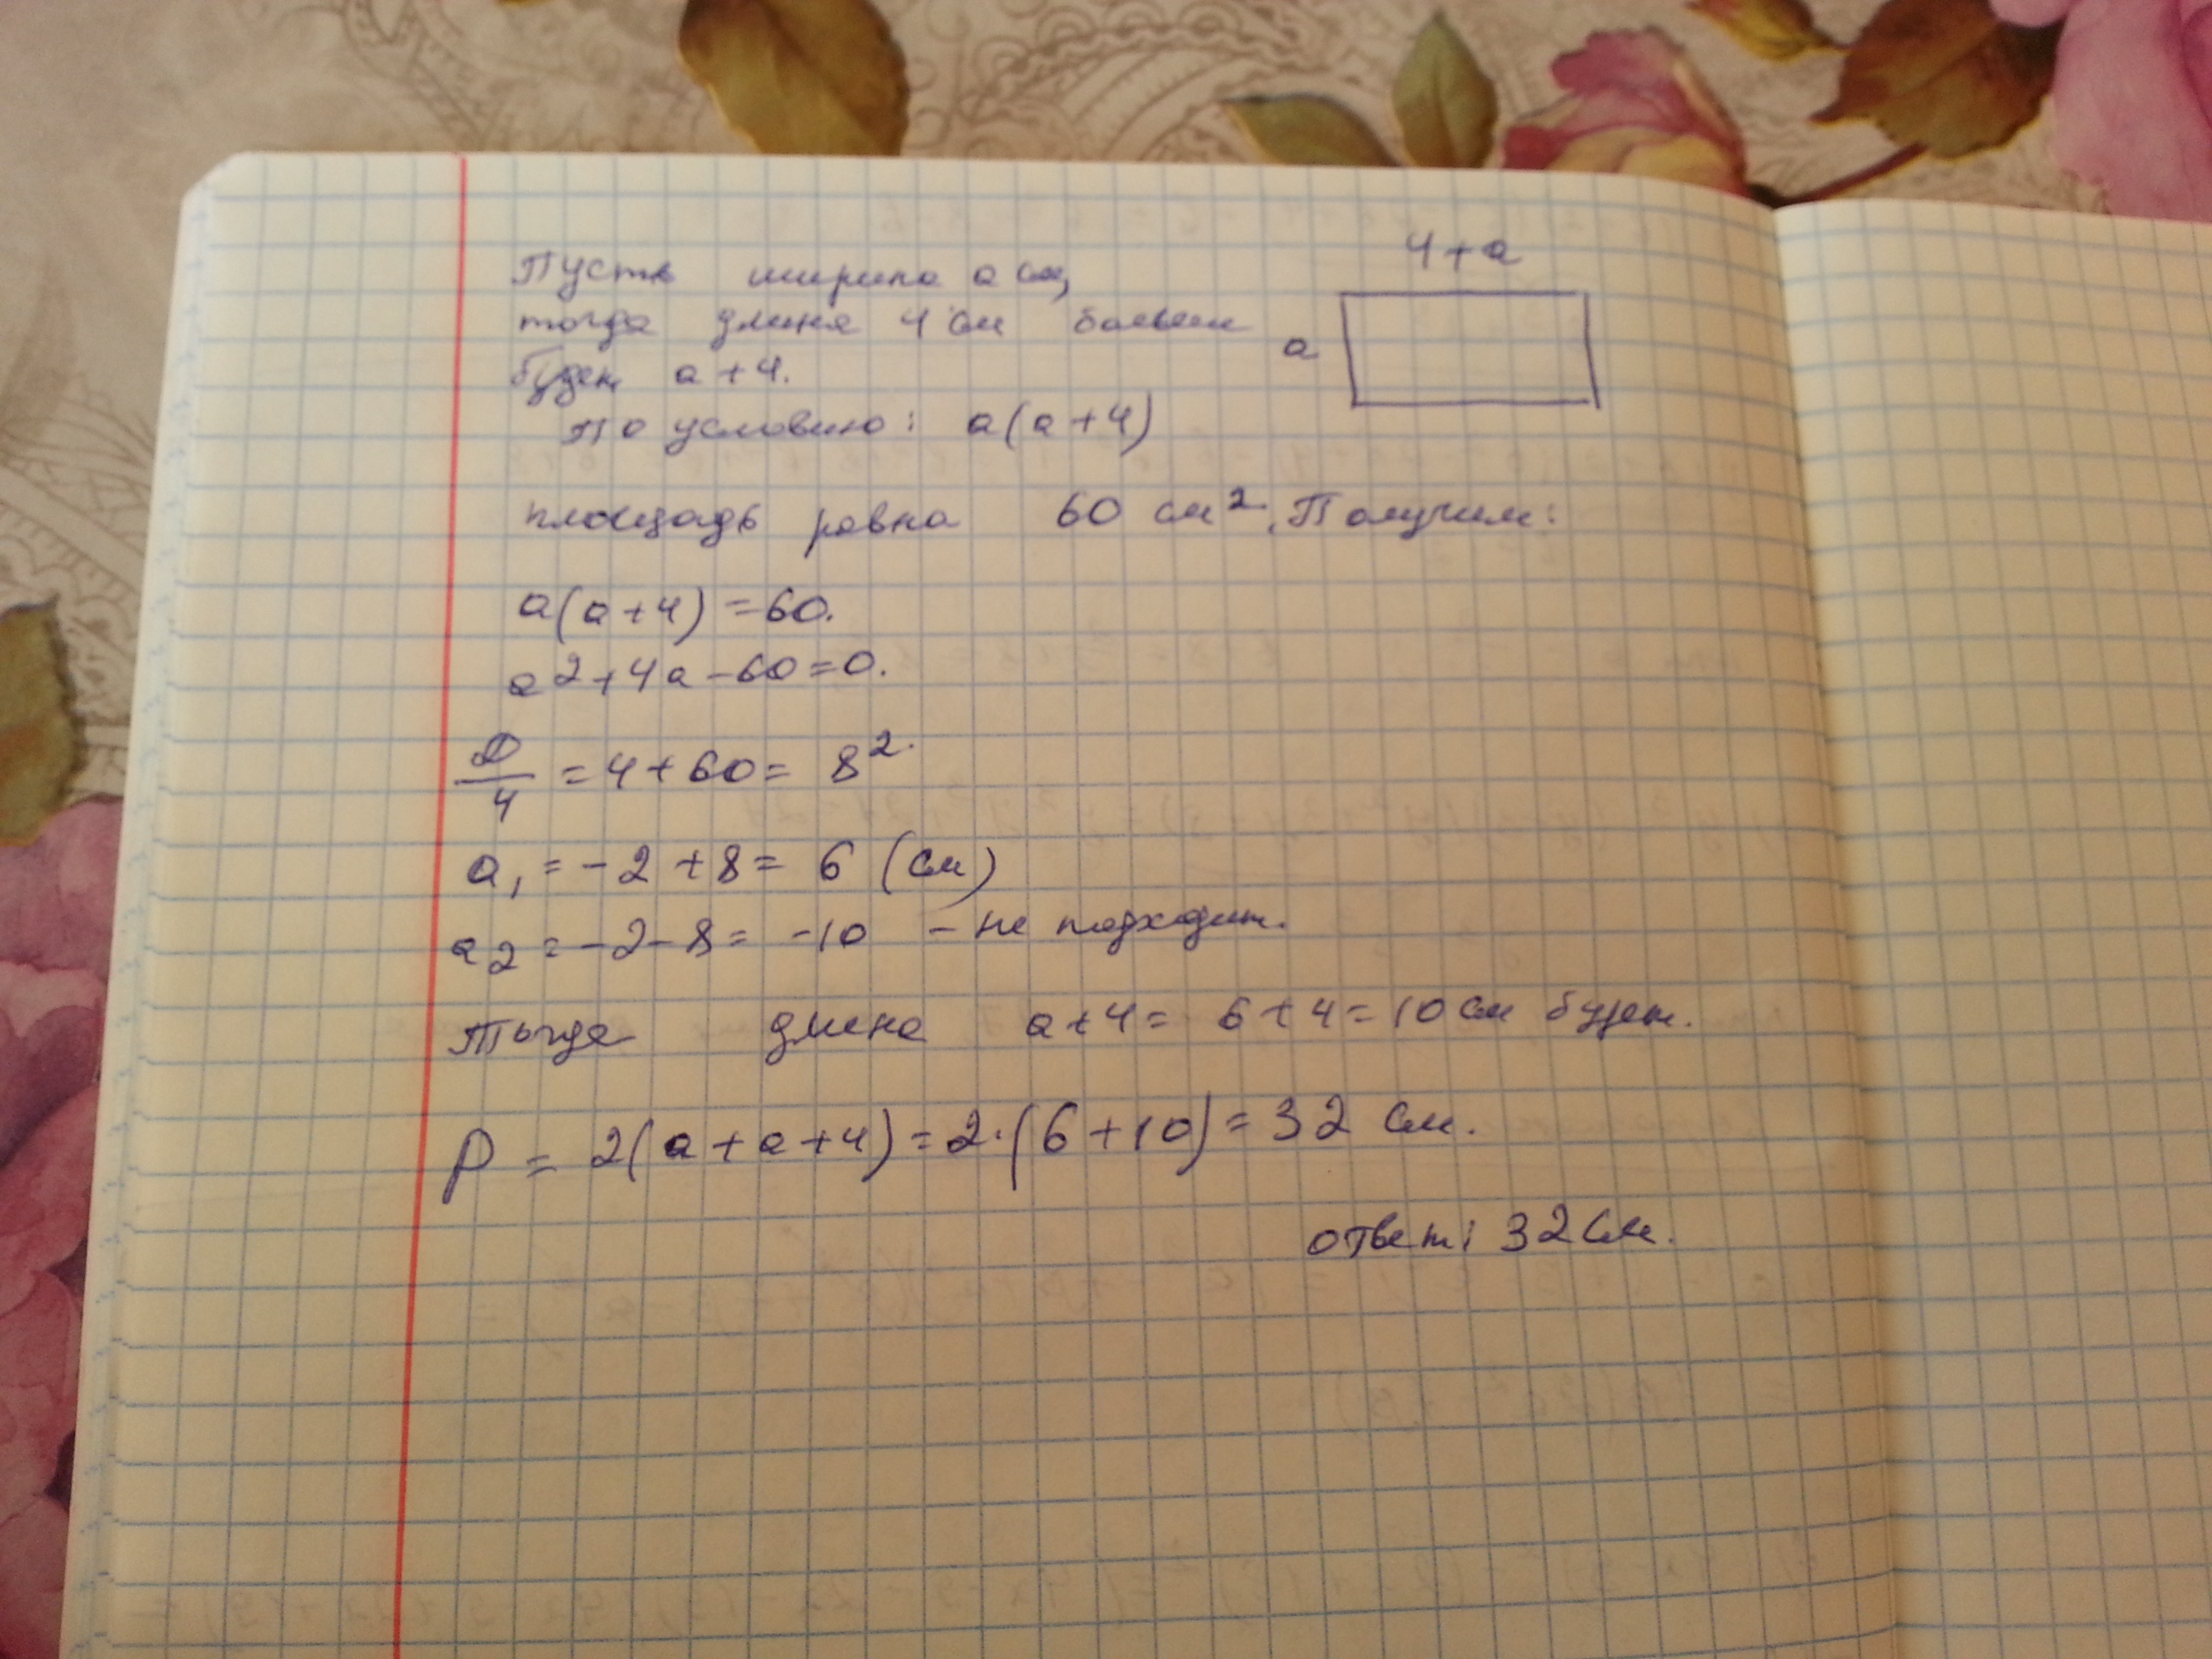 Пусть ширина a см,
4+a
тогда длина 4 см больше
a
будет a+4.
По условию: a(a+4)
площадь равна 60 см². Получим:
a(a+4)=60.
a²+4a-60=0.
D/4 = 4+60= 8².
a₁ = -2+8= 6 (см)
a₂ = -2-8= -10 - не подходит.
Тогда длина a+4= 6+4=10 см будет.
P = 2(a+a+4)=2·(6+10)=32 см.
ответ: 32 см.